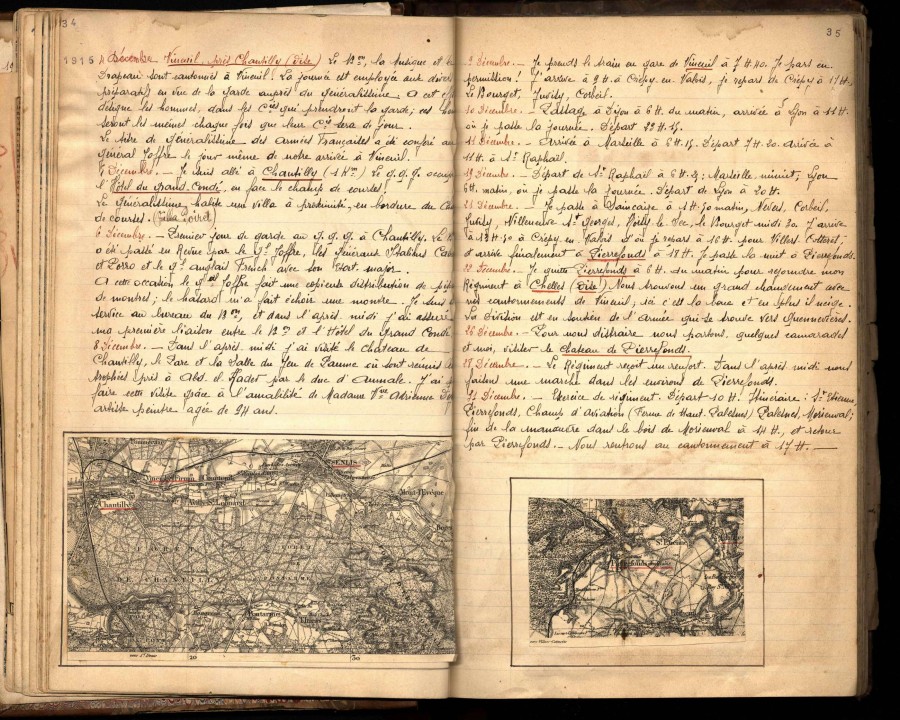 34
1915 4 Décembre Vineuil, près Chantilly (Oise) Le 1er Bon, la musique et
Drapeau sont cantonnés à Vineuil. La journée est employée aux divers
préparatifs en vue de la garde auprès du généralissime. On est
désigne les hommes, dans les Cies qui prendront la garde; ces
seront les mêmes chaque fois que leur Cie sera de jour.
Le titre de généralissime des Armées Françaises a été conféré au
général Joffre le jour même de notre arrivée à Vineuil.
Décembre. - Je suis allé à Chantilly (1 Km). Le G.Q.G. occupe
l'Hôtel du Grand Condé, en face le champ de courses.
Le Généralissime habite une villa à proximité, en bordure du
de courses. (Villa Poiret)
6 Décembre. - Premier jour de garde au G.Q.G. à Chantilly. Le
a été passé en Revue par le Gl Joffre, les Généraux
et Porro et le Gl anglais French avec son état-major.
A cette occasion le Gl Joffre fait une copieuse distribution de pipes
de montres; le hasard m'a fait échoir une montre. Je suis
service au bureau du Bon, et dans l'après midi j'ai assuré
ma première liaison entre le Bon et l'Hôtel du Grand Condé.
8 Décembre. - Dans l'après midi j'ai visité le château de
Chantilly, le Parc et la Salle du Jeu de Paume où sont réunis
trophées pris à Abd. el. Kader par le duc d'Aumale. J'ai
faire cette visite grâce à l'amabilité de Madame Vve Adrienne
artiste peintre agée de 94 ans.
SENLIS
Chantilly
Mont-l'Evêque
FORET
DE CHANTILLY
30
35
9 Décembre. - Je prends le train en gare de Vineuil à 7 H 40. Je pars en
permission! J'arrive à 9 H à Crépy en Valois, je repars de Crépy à 17 H,
Le Bourget, Juvisy, Corbeil.
10 Décembre. - Passage à Dijon à 6 H. du matin, arrivée à Lyon à 11 H
où je passe la journée. Départ 22 H 15.
11 Décembre. - Arrivée à Marseille à 6 H. 15. Départ 7 H. 20. Arrivée à
11 H. à St Raphaël.
Décembre. - Départ de St Raphaël à 6 H. Marseille, minuit; Lyon
6 H. matin, où je passe la journée. Départ de Lyon à 20 H.
21 Décembre. - Je passe à Saincaize à 1 H. 30 matin, Nevers, Corbeil,
Juvisy, Villeneuve St Georges, Noisy le Sec, le Bourget midi 30. J'arrive
à 13 H 30 à Crépy en Valois d'où je repars à 16 H pour Villers Cotterets,
et arrive finalement à Pierrefonds à 18 H. Je passe la nuit à Pierrefonds.
22 Décembre. - Je quitte Pierrefonds à 6 H. du matin pour rejoindre mon
Régiment à Chelles (Oise). Nous trouvons un grand changement avec
nos cantonnements de Vineuil, ici c'est la boue et en plus il neige.
La Division est en soutien de l'Armée qui se trouve vers Quennevières.
26 Décembre. - Pour nous distraire nous partons, quelques camarades
et moi, visiter le château de Pierrefonds.
27 Décembre. - Le Régiment reçoit un renfort. Dans l'après midi nous
faisons une marche dans les environs de Pierrefonds.
Décembre. - Exercice de régiment. Départ 10 H. Itinéraire: St Etienne,
Pierrefonds, Champ d'Aviation (Ferme de Haut Palesne) Palesne, Morienval;
fin de la manœuvre dans le bois de Morienval à 14 H, et retour
par Pierrefonds. - Nous rentrons au cantonnement à 17 H. -